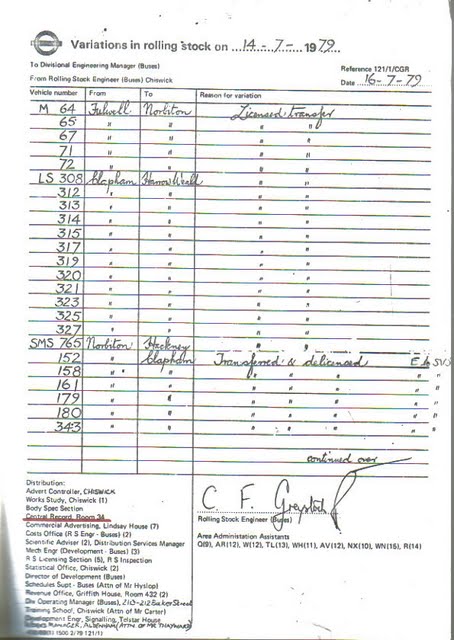 Variations in rolling stock on 14-7-1979
To Divisional Engineering Manager (Buses)
Reference 121/1/CGR
From Rolling Stock Engineer (Buses) Chiswick
Date 16-7-79
Vehicle number From To Reason for variation
M 64 Fulwell Norbiton Licensed transfer
65 " " " "
67 " " " "
71 " " " "
72 " " " "
LS 308 Clapham Harrow Weald " "
312 " " " "
313 " " " "
314 " " " "
315 " " " "
317 " " " "
319 " " " "
320 " " " "
321 " " " "
323 " " " "
325 " " " "
327 " " " "
SMS 765 Norbiton Hackney " "
152 " Clapham Transferred & delicensed
158 " " " "
161 " " " " "
179 " " " " "
180 " " " " "
343 " " " " "
continued over
Distribution:
Advert Controller, CHISWICK
Works Study, Chiswick (1)
Body Spec Section
Central Record, Room 34
Commercial Advertising, Lindsay House (7)
Costs Office (R S Engr - Buses) (2)
Scientific Adviser (2), Distribution Services Manager
Mech Engr (Development - Buses) (3)
R S Licensing Section (5), R S Inspection
Statistical Office, Chiswick (2)
Director of Development (Buses)
Schedules Supt - Buses (Attn of Mr Hyslop)
Revenue Office, Griffith House, Room 432 (2)
Div Operating Manager (Buses), 210-212 Baker Street
Training School, Chiswick (Attn of Mr Carter)
Development Engr, Signalling, Telstar House
C. F.
Rolling Stock Engineer (Buses)
Area Administration Assistants
Q(9), AR(12), W(12), TL(13), WH(11), AV(12), NX(10), WN(15), R(14)